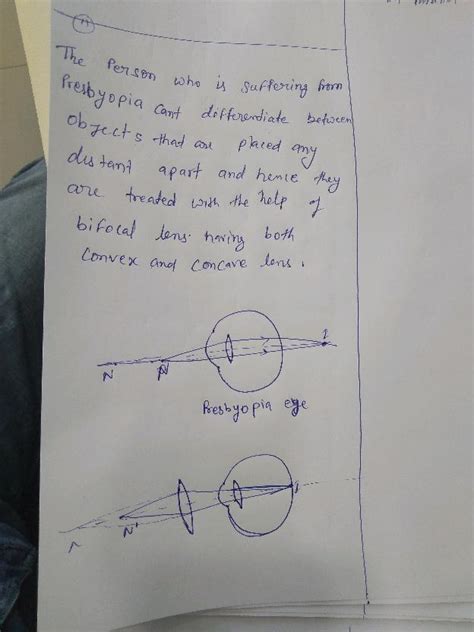 The Person who is suffering from
Presbyopia Cant differentiate between
objects that are placed any
distant apart and hence they
are treated with the help of
bifocal lens having both
Convex and Concave lens.
I
N
N'
Presbyopia eye
I
N'